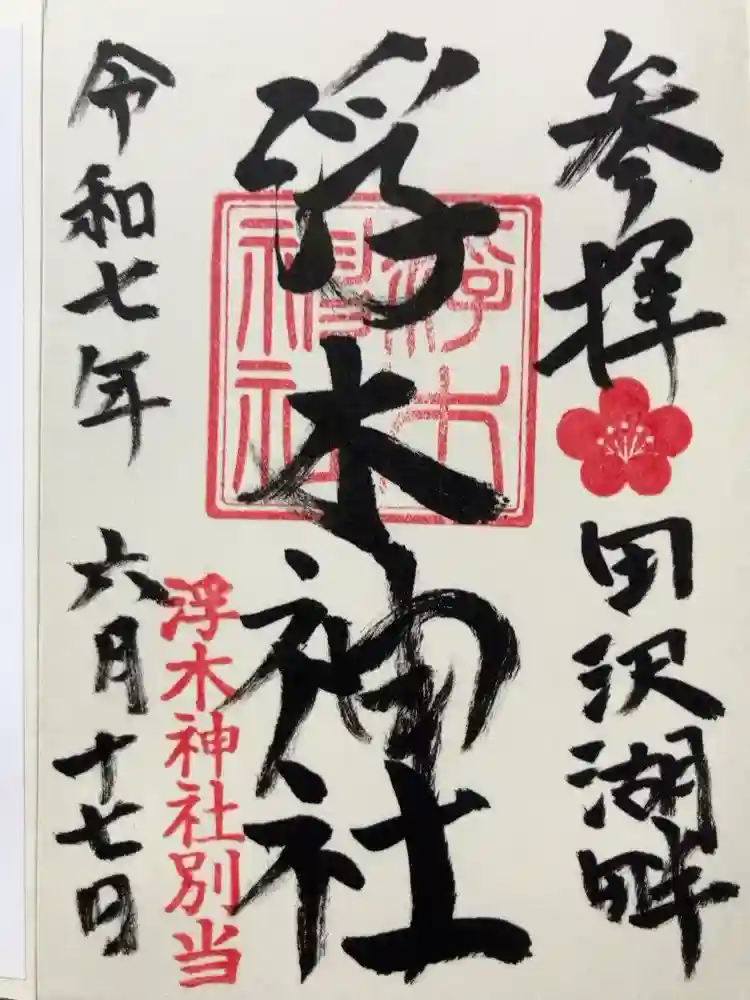 参拝
田沢湖畔
浮木神社
浮木神社
浮木神社別当
令和七年
六月十七日